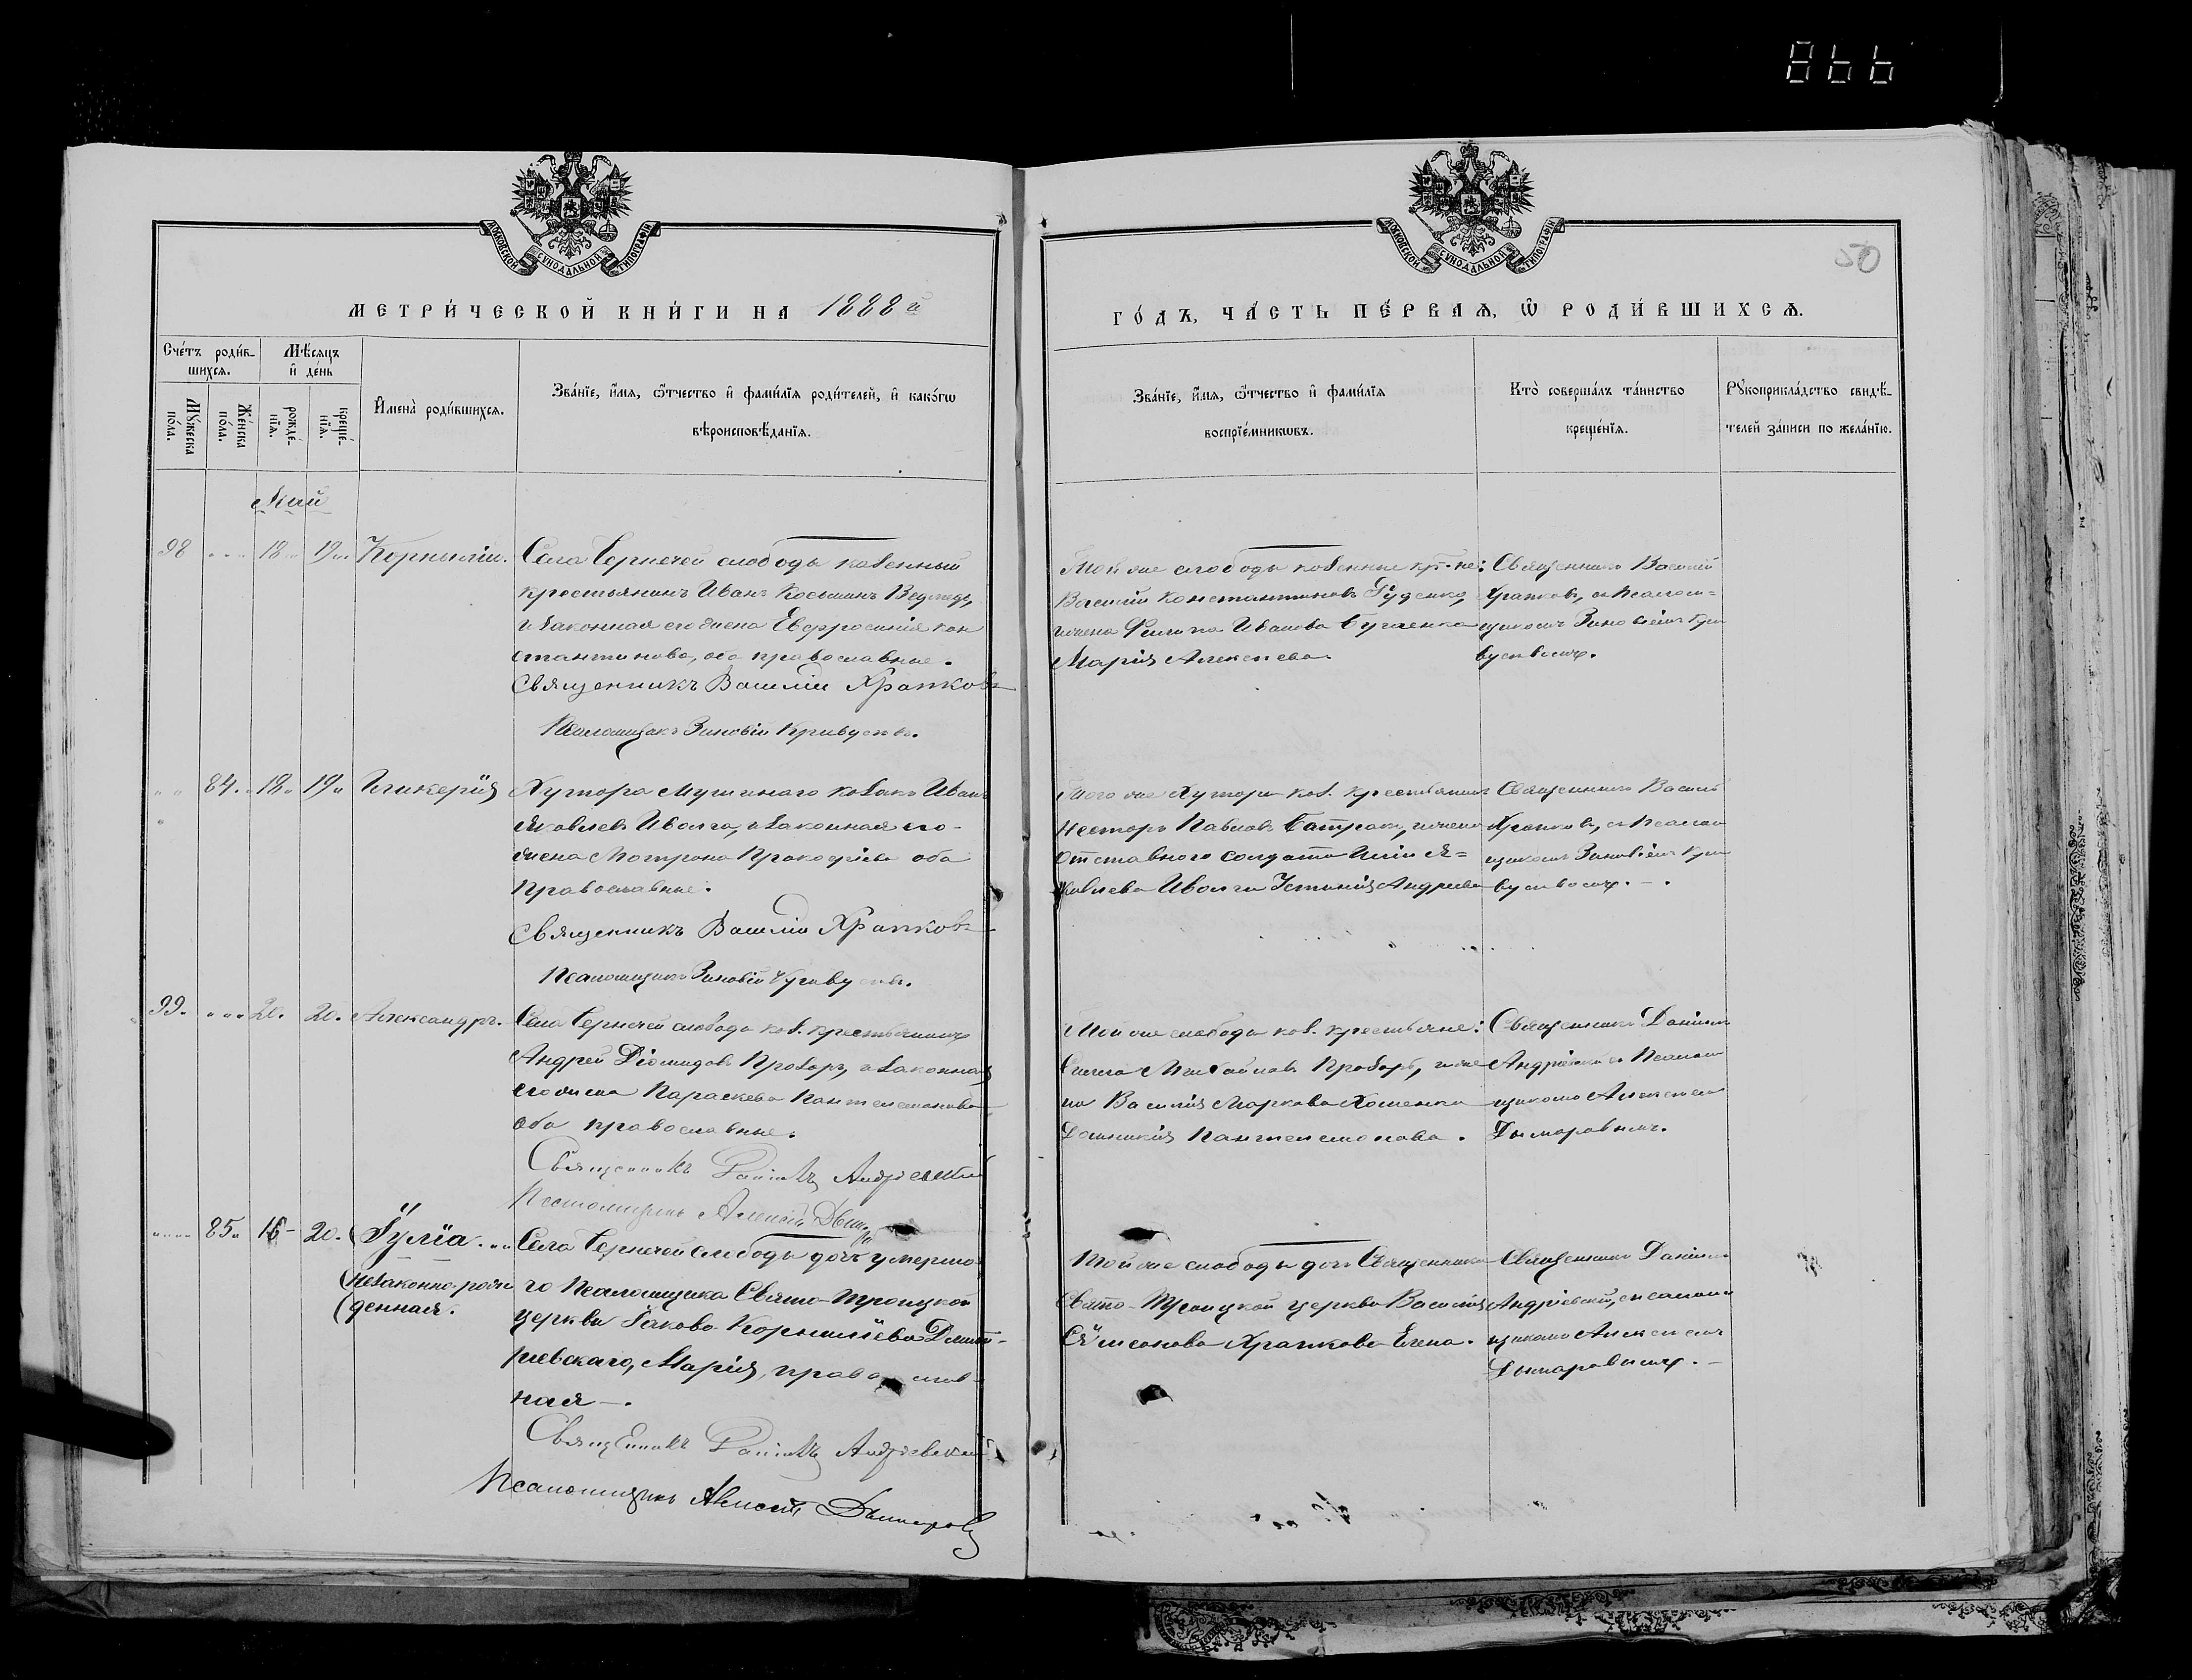 866
МОСКОВСКОЙ СѴНОДАЛЬНОЙ ТИПОГРАФІИ
МОСКОВСКОЙ СѴНОДАЛЬНОЙ ТИПОГРАФІИ
50
МЕТРИ́ЧЕСКОЙ КНИ́ГИ НА 1888 й
ГО́ДЪ, ЧА́СТЬ ПЕ́РВАѦ, Ѡ҆ РОДИ́ВШИХСѦ.
Сче́тъ роди́в-
шихсѧ.
Мѣ́сѧцъ
и҆ де́нь
Мꙋ́жеска
по́ла.
Же́нска
по́ла.
рожде́-
нїѧ.
креще́-
нїѧ.
И҆мена̀ роди́вшихсѧ.
Зва́нїе, и҆́мѧ, ѻ҆́тчество и҆ фами́лїѧ роди́телей, и҆ како́гѡ
вѣроисповѣ́данїѧ.
Зва́нїе, и҆́мѧ, ѻ҆́тчество и҆ фами́лїѧ
воспрїе́мникѡвъ.
Кто̀ соверша́лъ та́инство
креще́нїѧ.
Рꙋкоприкла́дство свидѣ́-
телей за́писи по жела́нїю.
Май
98 18 19 Корнилій.
Села Чернечей слободы казенный
крестьянинъ Иванъ Косьминъ Ведмедь,
и законная его жена Евфросинія Кон
стантинова, оба православные.
Священникъ Василій Храпковъ
Псаломщикъ Зиновій Кривусевъ.
Той же слободы казенные кр-не:
Василій Константиновъ Руденко,
и жена Филипа Иванова
Марія Алексѣева.
Священникъ Василій
Храпковъ, съ Псалом=
щикомъ Зиновіемъ Кри
вусевымъ.
84. 18 19 Гликерія
Хутора казакъ Иванъ
Яковлевъ Иволга, и законная его
жена Мотрона Прокофіева оба
православные.
Священникъ Василій Храпковъ
Псаломщикъ Зиновій Кривусевъ.
Того же Хутора каз. крестьянинъ
Несторъ Павловъ Батракъ, и жена
отставного солдата Иліи Я=
ковлева Иволги Устинія Андреева
Священникъ Василій
Храпковъ, съ Псалом
щикомъ Зиновіемъ Кри
вусевымъ.
99. 20. 20. Александръ.
Села Чернечей слободы каз. крестьянинъ
Андрей Діомидовъ Прозоръ, и законная
его жена Параскева Пантелеимонова
оба православные.
Священникъ Даніилъ Андріевскій
Псаломщикъ Алексій
Той же слободы каз. крестьяне:
Михайловъ Прозоръ, и же
на Василія Маркова Хоменка
Домникія Пантелеимонова.
Священникъ Даніилъ
Андріевскій съ Псалом
щикомъ Алексѣемъ
Дымаровымъ.
85. 16 20. Іулія.
(незаконно-рож
(денная.
Села Чернечей слободы дочь умерша
го Псаломщика Свято-Троицкой
церкви Іакова Корниліева Дмит-
ріевскаго, Марія, православ-
ная.
Священникъ Даніилъ Андріевскій
Псаломщикъ Алексій Дымаровъ
Той же слободы дочь Священника
Свято-Троицкой церкви Василія
Сѵмеонова Храпкова Елена.
Священникъ Даніилъ
Андріевскій, съ псалом
щикомъ Алексѣемъ
Дымаровымъ.